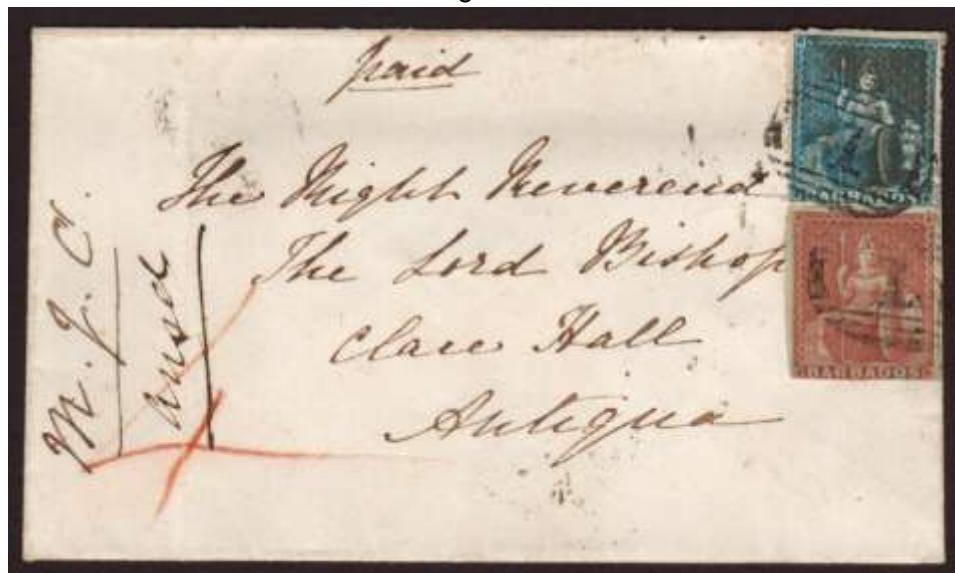 paid
The Right Reverend
The Lord Bishop
Clare Hall
Antigua
M. J. C.
BARBADOS
BARBADOS